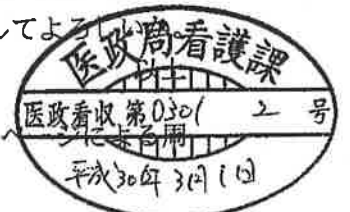 してよろしい
医政局看護課
以上
医政看収 第0301 2 号
ページによる両
平成30年 3月 1日